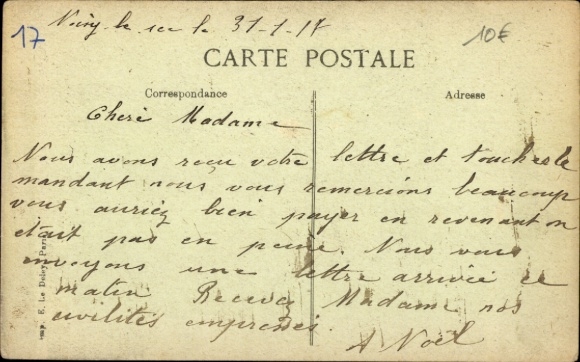 17
Noisy le sec le 31-1-17
10€
CARTE POSTALE
Correspondance
Adresse
Cheré Madame
Nous avons reçu votre lettre et toucher le
mandant nous vous remercions beaucoup
vous auriez bien payer en revenant on
etait pas en peine. Nous vous
envoyons une lettre arrivée ce
matin Recevez Madame nos
civilités empressés.
A Noël
Imp. E. Le Deley, Paris